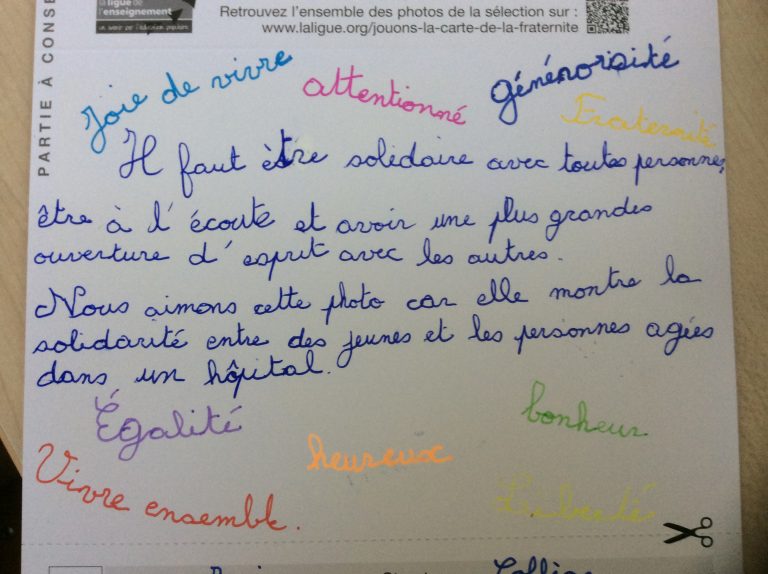 la ligue de
l'enseignement
un avenir par l'éducation populaire
Retrouvez l'ensemble des photos de la sélection sur :
www.laligue.org/jouons-la-carte-de-la-fraternite
PARTIE À CONSE
Joie de vivre
attentionné
générorisité
Fraternité
Il faut être solidaire avec toutes personnes,
être à l'écoute et avoir une plus grandes
ouverture d'esprit avec les autres.
Nous aimons cette photo car elle montre la
solidarité entre des jeunes et les personnes agées
dans un hôpital.
Égalité
bonheur
heureux
Vivre ensemble.
Liberté